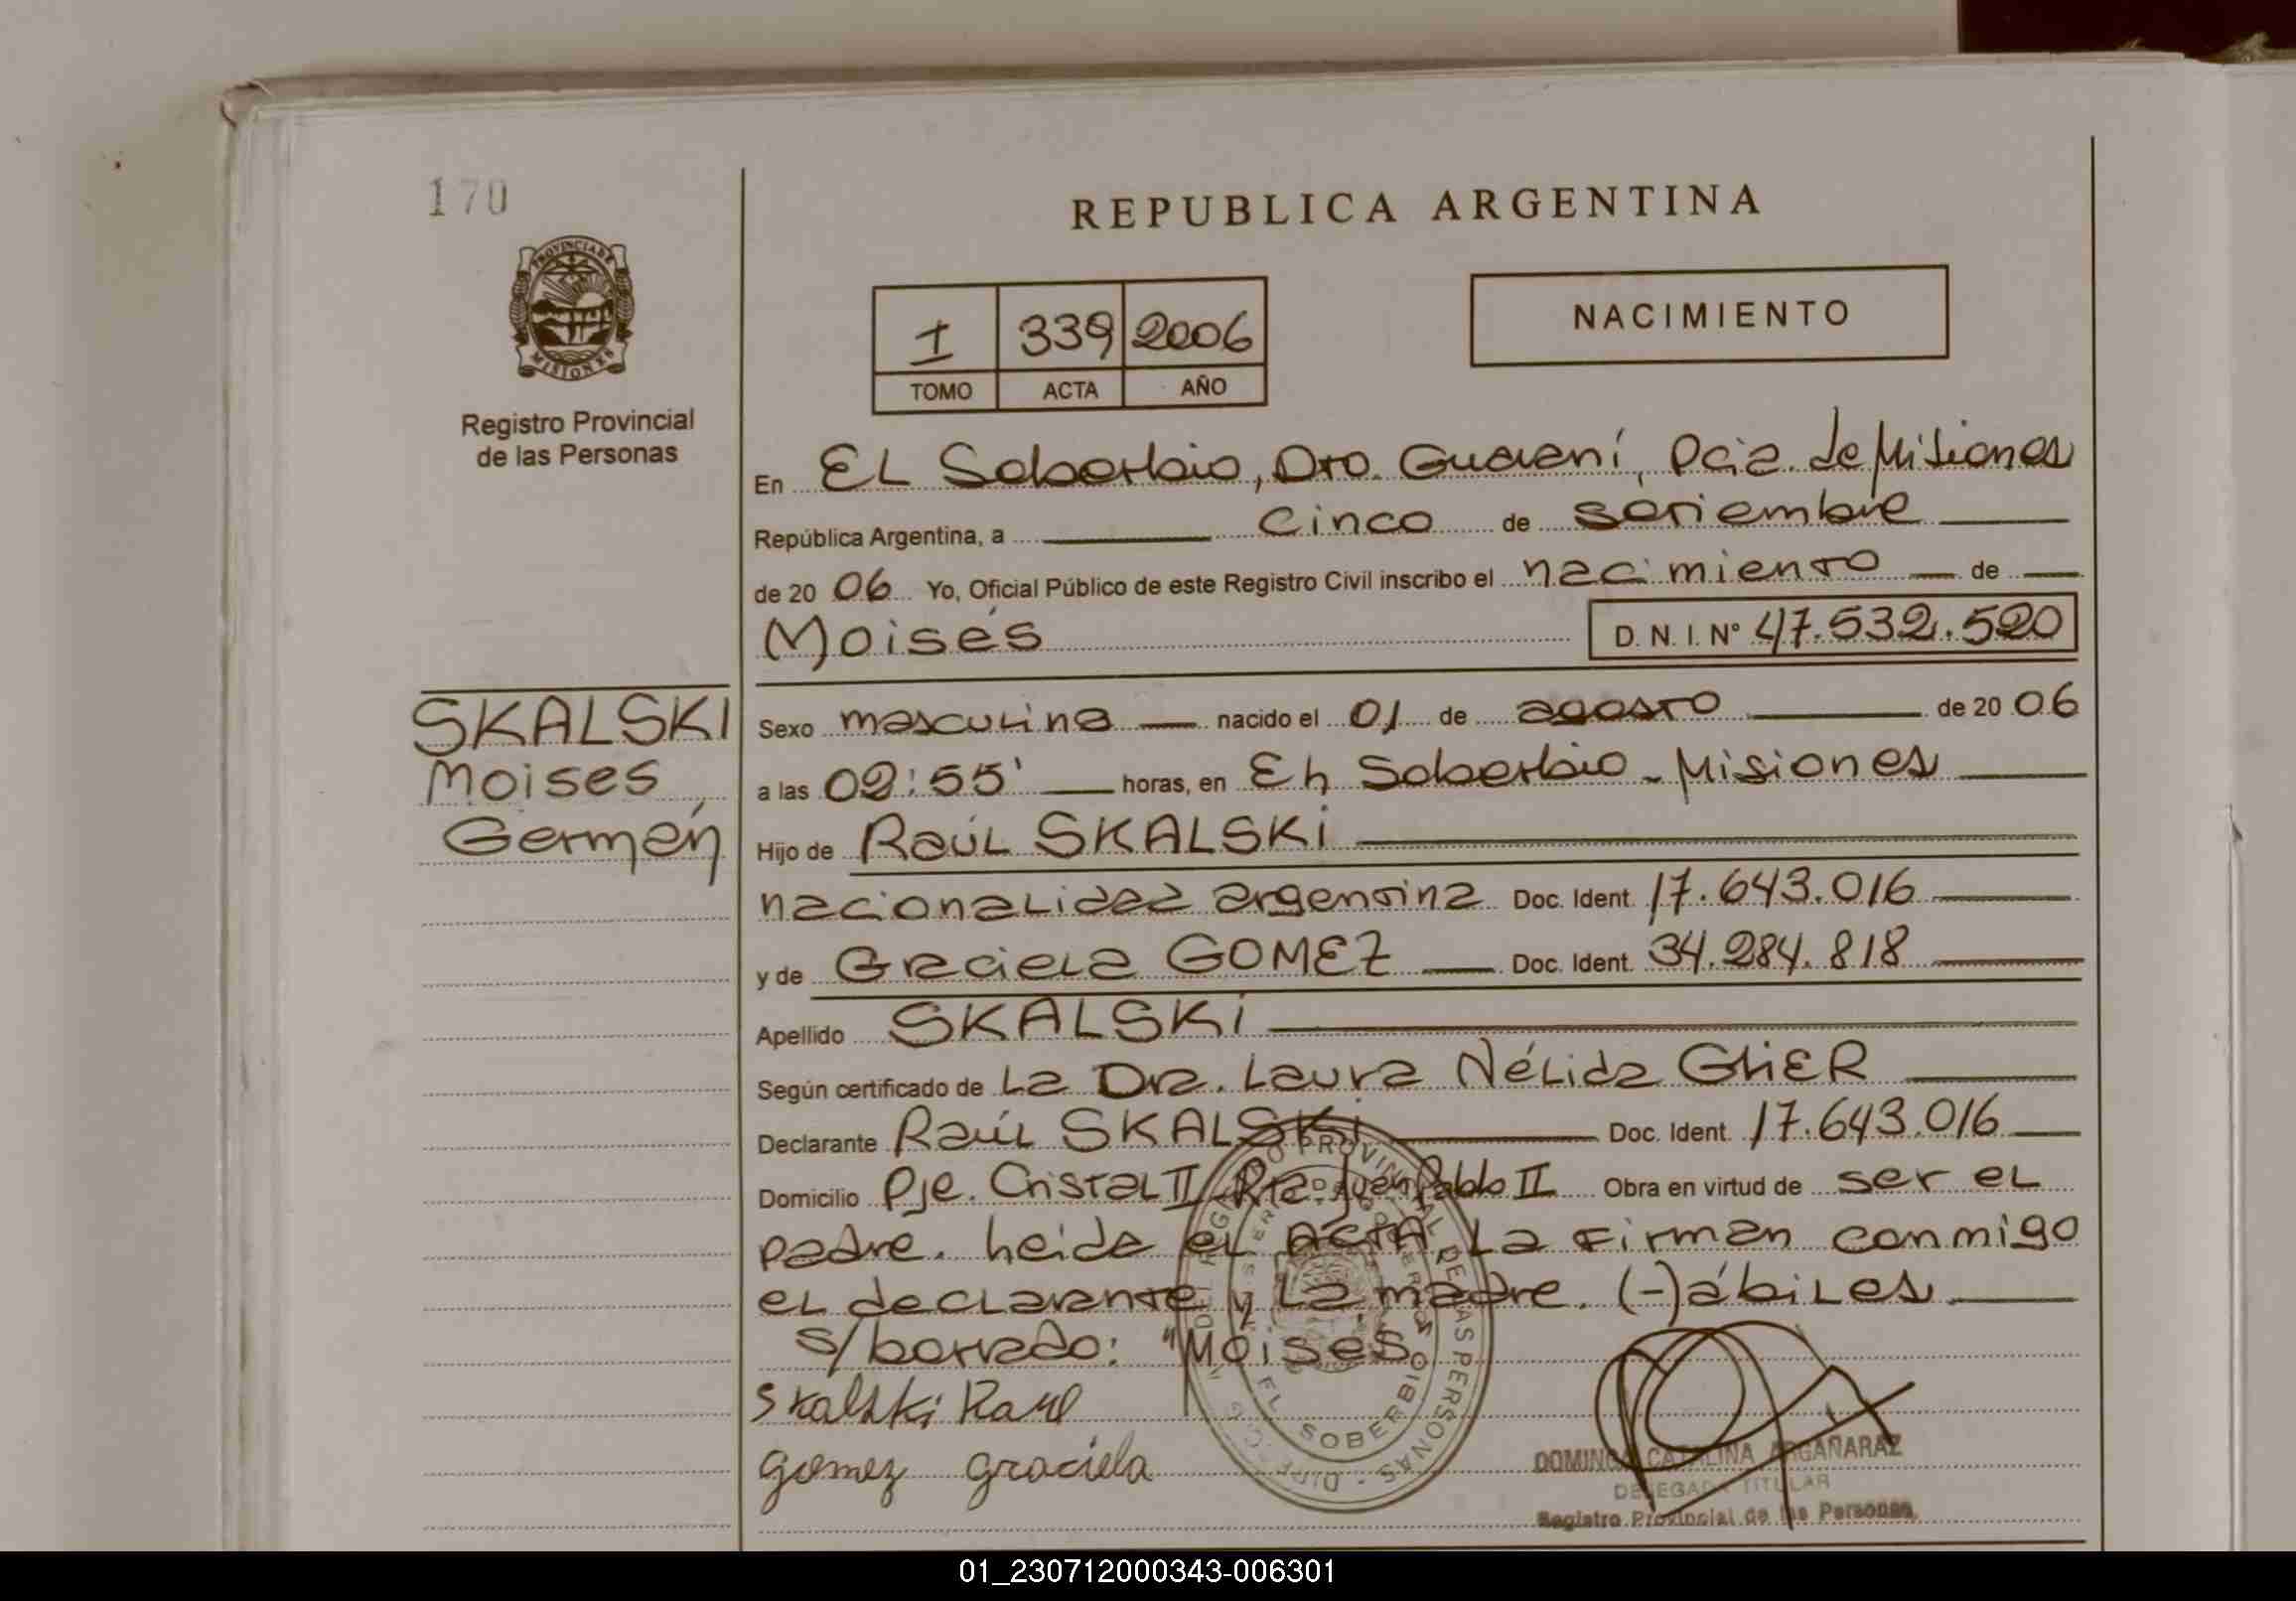 170
REPUBLICA ARGENTINA
PROVINCIA DE
MISIONES
Registro Provincial
de las Personas
I 339 2006
TOMO ACTA AÑO
NACIMIENTO
En EL Soberbio, Dto. Guaraní, Pcia. de Misiones
República Argentina, a cinco de setiembre
de 20 06 Yo, Oficial Público de este Registro Civil inscribo el nacimiento de
Moisés D. N. I. N° 47.532.520
SKALSKI
Moises
Germán
Sexo masculino nacido el 01 de agosto de 20 06
a las 02:55' horas, en El Soberbio - Misiones
Hijo de Raúl SKALSKi
nacionalidad argentina Doc. Ident. 17.643.016
y de Graciela GOMEZ Doc. Ident. 34.284.818
Apellido SKALSKi
Según certificado de La Dra. Laura Nélida GLIER
Declarante Raúl SKALSKi Doc. Ident. 17.643.016
Domicilio Pje. Cristal II Rta. Juan Pablo II Obra en virtud de ser el
padre. Leida el ACTA, La Firman conmigo
el declarante y La madre. (-) ábiles
s/borrado: "Moisés
Skalski Raul
gomez graciela
REGISTRO PROVINCIAL DE LAS PERSONAS
EL SOBERBIO
DOMINGA CATALINA ARGAÑARAZ
DELEGADA TITULAR
Registro Provincial de las Personas
01_230712000343-006301